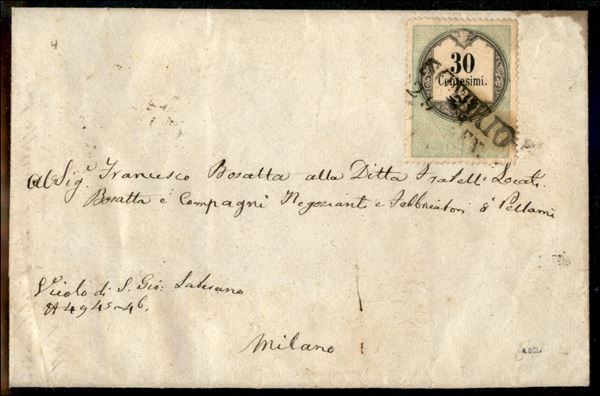 30
Centesimi.
Al Sig.r Francesco Bosatta alla Ditta Fratelli Locati
Bosatta e Compagni Negozianti e Fabbricatori di Pellami
Vicolo di S. Gio: Laterano
N 4945-46.
Milano